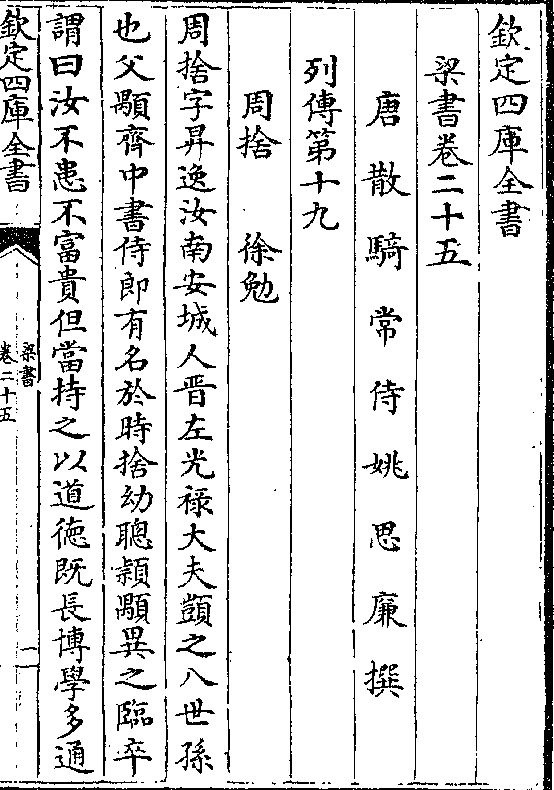 欽定四庫全書
梁書卷二十五
唐散騎常侍姚思廉撰
列傳第十九
周捨 徐勉
周捨字昇逸汝南安城人晋左光禄大夫顗之八世孫
也父顒齊中書侍郎有名於時捨幼聰穎顒異之臨卒
謂曰汝不患不富貴但當持之以道德既長博學多通
欽定四庫全書
梁書
卷二十五
一